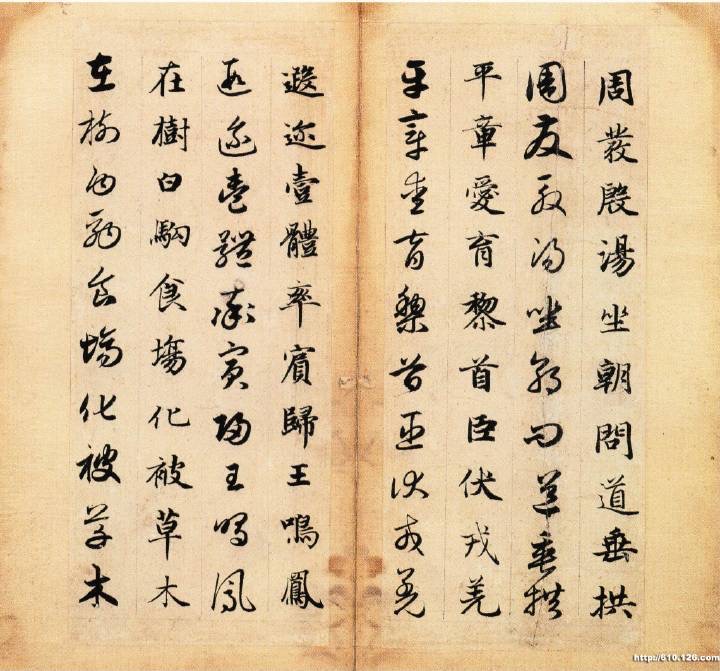 周發殷湯坐朝問道垂拱
周發殷湯坐朝問道垂拱
平章愛育黎首臣伏戎羌
平章愛育黎首臣伏戎羌
遐迩壹體率賓歸王鳴鳳
遐迩壹體率賓歸王鳴鳳
在樹白駒食塲化被草木
在樹白駒食塲化被草木
http://610.126.com